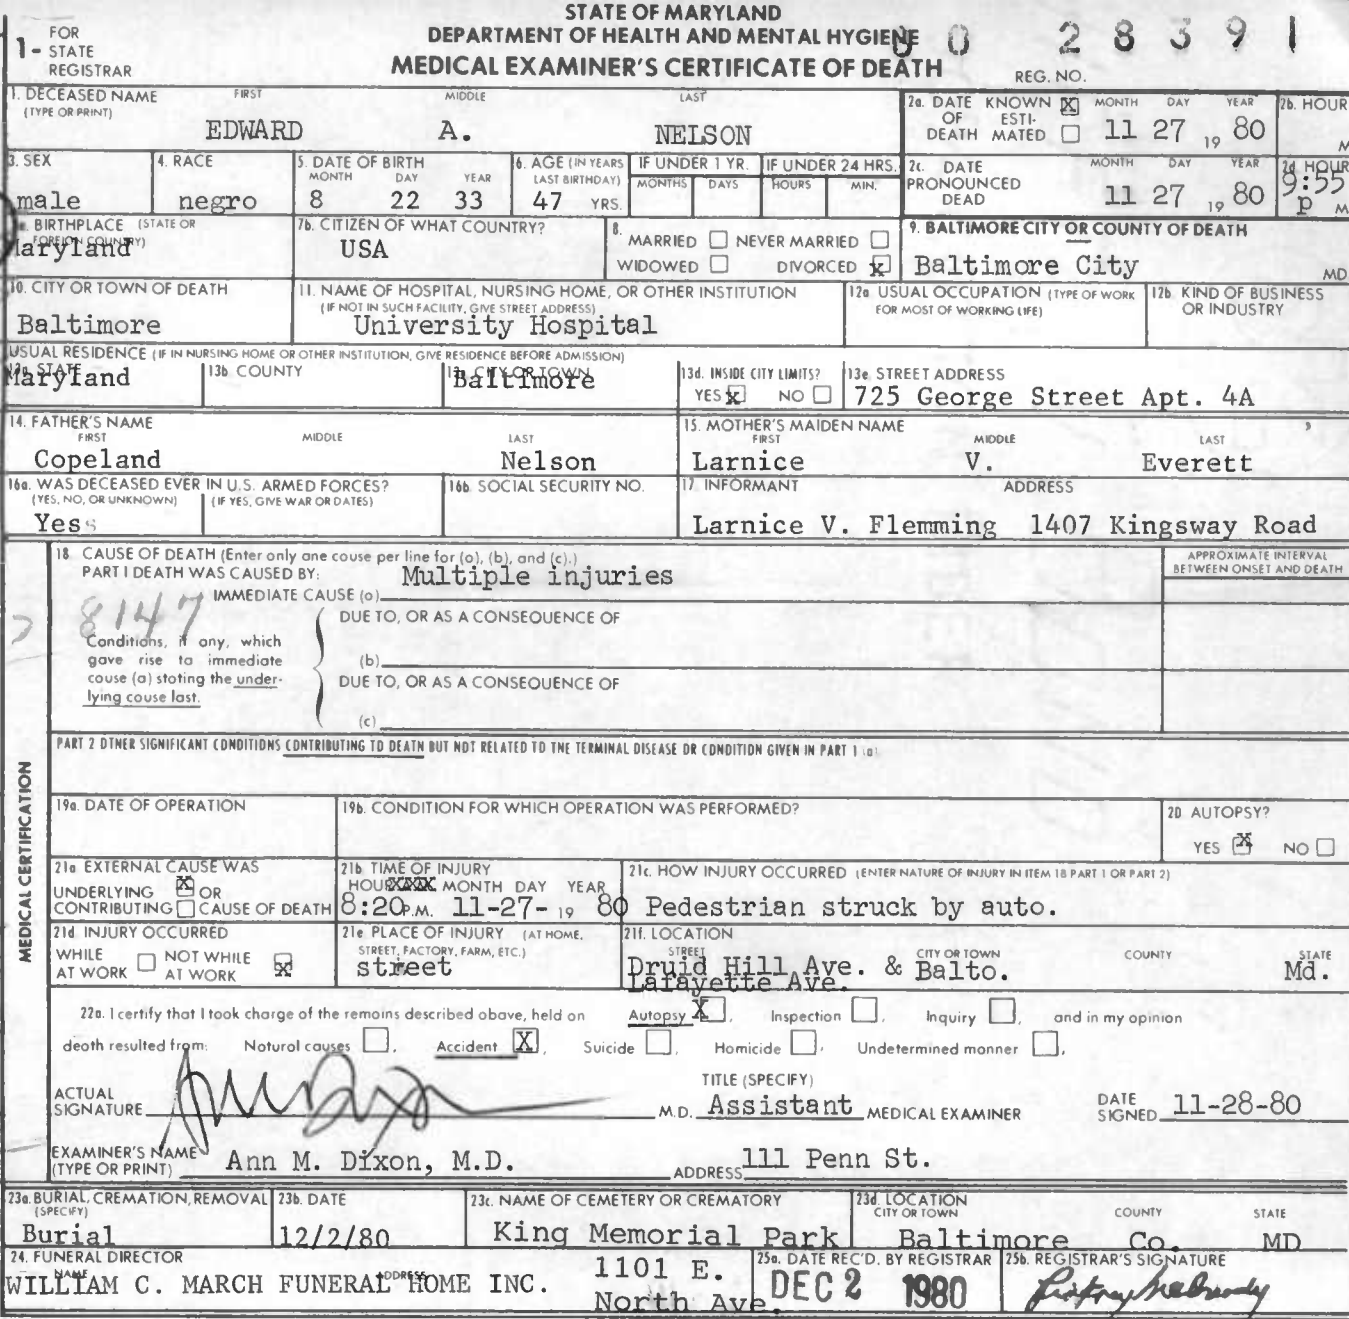 STATE OF MARYLAND
DEPARTMENT OF HEALTH AND MENTAL HYGIENE
MEDICAL EXAMINER'S CERTIFICATE OF DEATH
FOR
1- STATE
REGISTRAR
80 28391
REG. NO.
1. DECEASED NAME FIRST MIDDLE LAST
(TYPE OR PRINT)
EDWARD A. NELSON
2a. DATE KNOWN X MONTH DAY YEAR 2b. HOUR
OF ESTI-
DEATH MATED 11 27 19 80 M
3. SEX 4. RACE 5. DATE OF BIRTH 6. AGE (IN YEARS IF UNDER 1 YR. IF UNDER 24 HRS.
MONTH DAY YEAR LAST BIRTHDAY) MONTHS DAYS HOURS MIN.
male negro 8 22 33 47 YRS.
2c. DATE MONTH DAY YEAR 2d HOUR
PRONOUNCED
DEAD 11 27 19 80 9:55 p M
BIRTHPLACE (STATE OR
FOREIGN COUNTRY)
Maryland
7b. CITIZEN OF WHAT COUNTRY?
USA
8. MARRIED NEVER MARRIED
WIDOWED DIVORCED X
9. BALTIMORE CITY OR COUNTY OF DEATH
Baltimore City MD
10. CITY OR TOWN OF DEATH
Baltimore
11. NAME OF HOSPITAL, NURSING HOME, OR OTHER INSTITUTION
(IF NOT IN SUCH FACILITY, GIVE STREET ADDRESS)
University Hospital
12a USUAL OCCUPATION (TYPE OF WORK
FOR MOST OF WORKING LIFE)
12b. KIND OF BUSINESS
OR INDUSTRY
USUAL RESIDENCE (IF IN NURSING HOME OR OTHER INSTITUTION, GIVE RESIDENCE BEFORE ADMISSION)
13a. STATE 13b COUNTY 13c. CITY OR TOWN 13d. INSIDE CITY LIMITS? 13e. STREET ADDRESS
Maryland Baltimore YES X NO 725 George Street Apt. 4A
14. FATHER'S NAME
FIRST MIDDLE LAST
Copeland Nelson
15. MOTHER'S MAIDEN NAME
FIRST MIDDLE LAST
Larnice V. Everett
16a. WAS DECEASED EVER IN U.S. ARMED FORCES?
(YES, NO, OR UNKNOWN) (IF YES, GIVE WAR OR DATES)
Yes
16b. SOCIAL SECURITY NO.
17. INFORMANT ADDRESS
Larnice V. Flemming 1407 Kingsway Road
MEDICAL CERTIFICATION
18 CAUSE OF DEATH (Enter only one cause per line for (a), (b), and (c).)
PART I DEATH WAS CAUSED BY:
IMMEDIATE CAUSE (a) Multiple injuries
APPROXIMATE INTERVAL
BETWEEN ONSET AND DEATH
8147
DUE TO, OR AS A CONSEQUENCE OF
Conditions, if any, which
gave rise to immediate
cause (a) stating the under-
lying cause last.
(b)
DUE TO, OR AS A CONSEQUENCE OF
(c)
PART 2 OTHER SIGNIFICANT CONDITIONS CONTRIBUTING TO DEATH BUT NOT RELATED TO THE TERMINAL DISEASE OR CONDITION GIVEN IN PART 1 (a)
19a. DATE OF OPERATION
19b. CONDITION FOR WHICH OPERATION WAS PERFORMED?
20 AUTOPSY?
YES X NO
21a EXTERNAL CAUSE WAS
UNDERLYING X OR
CONTRIBUTING CAUSE OF DEATH
21b TIME OF INJURY
HOUR XXXX MONTH DAY YEAR
8:20 P.M. 11-27- 19 80
21c. HOW INJURY OCCURRED (ENTER NATURE OF INJURY IN ITEM 18 PART 1 OR PART 2)
Pedestrian struck by auto.
21d INJURY OCCURRED
WHILE NOT WHILE
AT WORK AT WORK X
21e PLACE OF INJURY (AT HOME,
STREET, FACTORY, FARM, ETC.)
street
21f. LOCATION
STREET CITY OR TOWN COUNTY STATE
Druid Hill Ave. & Balto. Md.
Lafayette Ave.
22a. I certify that I took charge of the remains described above, held on Autopsy X, Inspection , Inquiry , and in my opinion
death resulted from: Natural causes , Accident X, Suicide , Homicide , Undetermined manner .
ACTUAL
SIGNATURE M.D.
TITLE (SPECIFY)
Assistant MEDICAL EXAMINER
DATE
SIGNED 11-28-80
EXAMINER'S NAME
(TYPE OR PRINT) Ann M. Dixon, M.D. ADDRESS 111 Penn St.
23a. BURIAL, CREMATION, REMOVAL 23b. DATE 23c. NAME OF CEMETERY OR CREMATORY 23d. LOCATION
(SPECIFY) CITY OR TOWN COUNTY STATE
Burial 12/2/80 King Memorial Park Baltimore Co. MD
24. FUNERAL DIRECTOR
NAME ADDRESS
WILLIAM C. MARCH FUNERAL HOME INC. 1101 E.
North Ave.
25a. DATE REC'D. BY REGISTRAR
DEC 2 1980
25b. REGISTRAR'S SIGNATURE